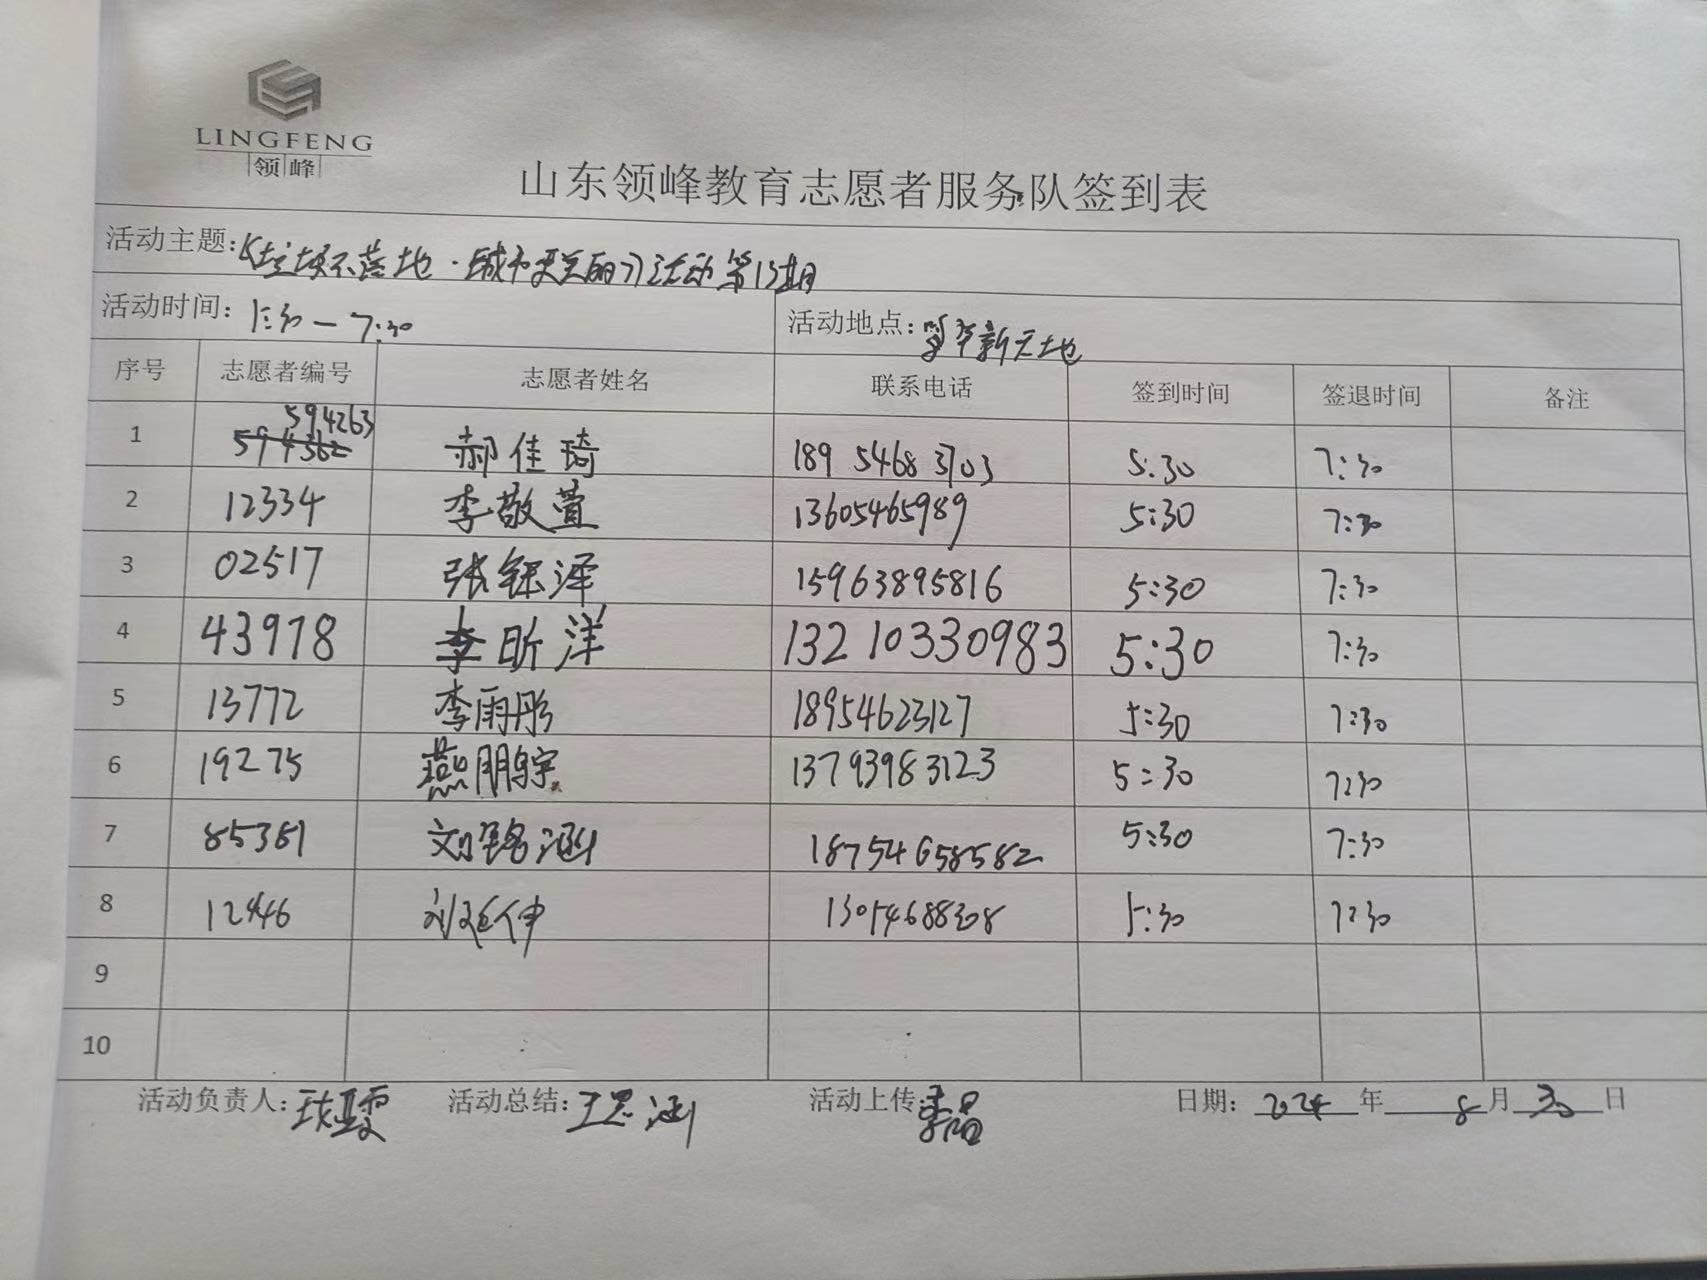 LINGFENG
领峰
山东领峰教育志愿者服务队签到表
活动主题:《垃圾不落地·城市更美丽》活动第13期
活动时间: 5:30 — 7:30 活动地点: 新天地
序号 志愿者编号 志愿者姓名 联系电话 签到时间 签退时间 备注
594263
1 594362 郝佳琦 189 5468 3703 5:30 7:30
2 12334 李敬萱 13605465989 5:30 7:30
3 02517 张钰泽 15963895816 5:30 7:30
4 43978 李昕洋 13210330983 5:30 7:30
5 13772 李雨彤 18954623127 5:30 7:30
6 19275 燕鹏宇 13793983123 5:30 7:30
7 85381 刘铭涵 18754658582 5:30 7:30
8 12446 刘延伸 13054688308 5:30 7:30
9
10
活动负责人: 活动总结: 王思涵 活动上传: 李晶 日期: 2024 年 8 月 30 日